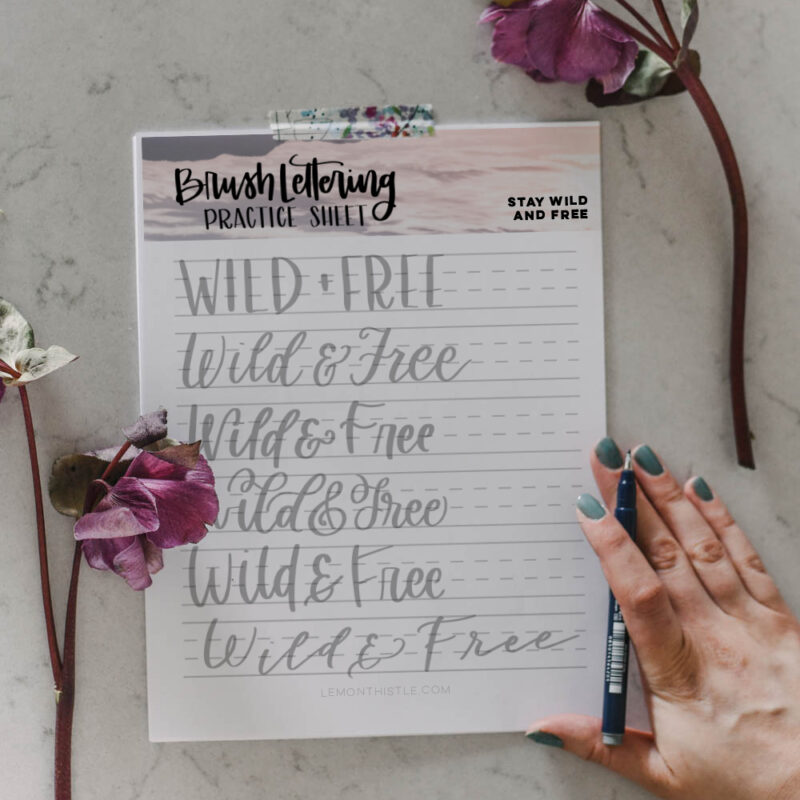 Brush Lettering
PRACTICE SHEET
STAY WILD
AND FREE
WILD + FREE
Wild & Free
Wild & Free
Wild & Free
Wild & Free
Wild & Free
LEMONTHISTLE.COM